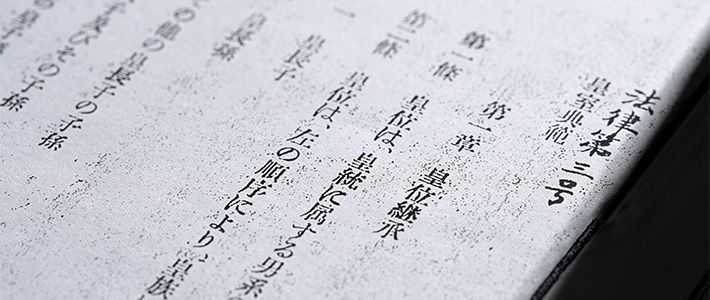 法律第三号
皇室典範
第一章 皇位継承
第一條 皇位は、皇統に属する男系の
第二條 皇位は、左の順序により、皇族
一 皇長子
皇長孫
の他の皇長子の子孫
子及びその子孫
の皇子孫